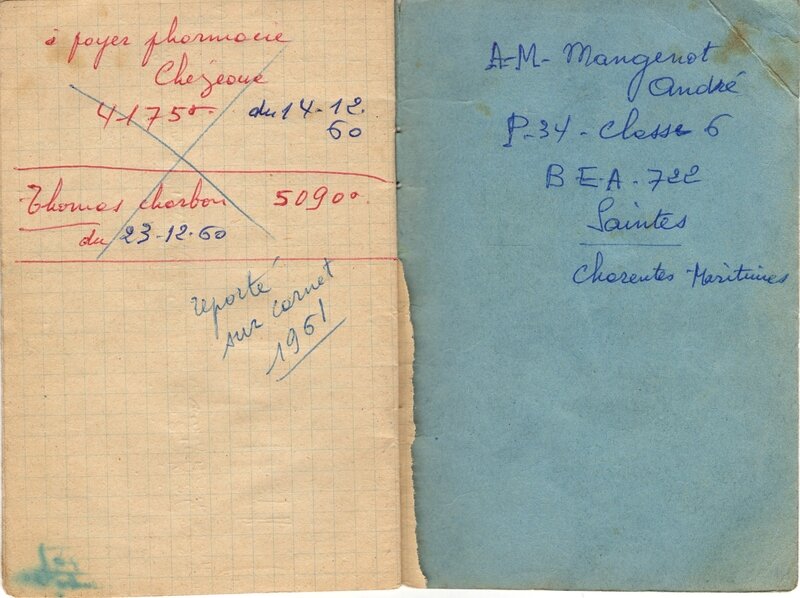 à payer pharmacie
Chezeaue
4175 du 14-12.
60
Thomas charbon 5090
du 23-12-60
reporté
sur carnet
1961
A-M- Mangenot
André
P-34 - Classe 6
B E-A - 722
Saintes
Charentes Maritimes